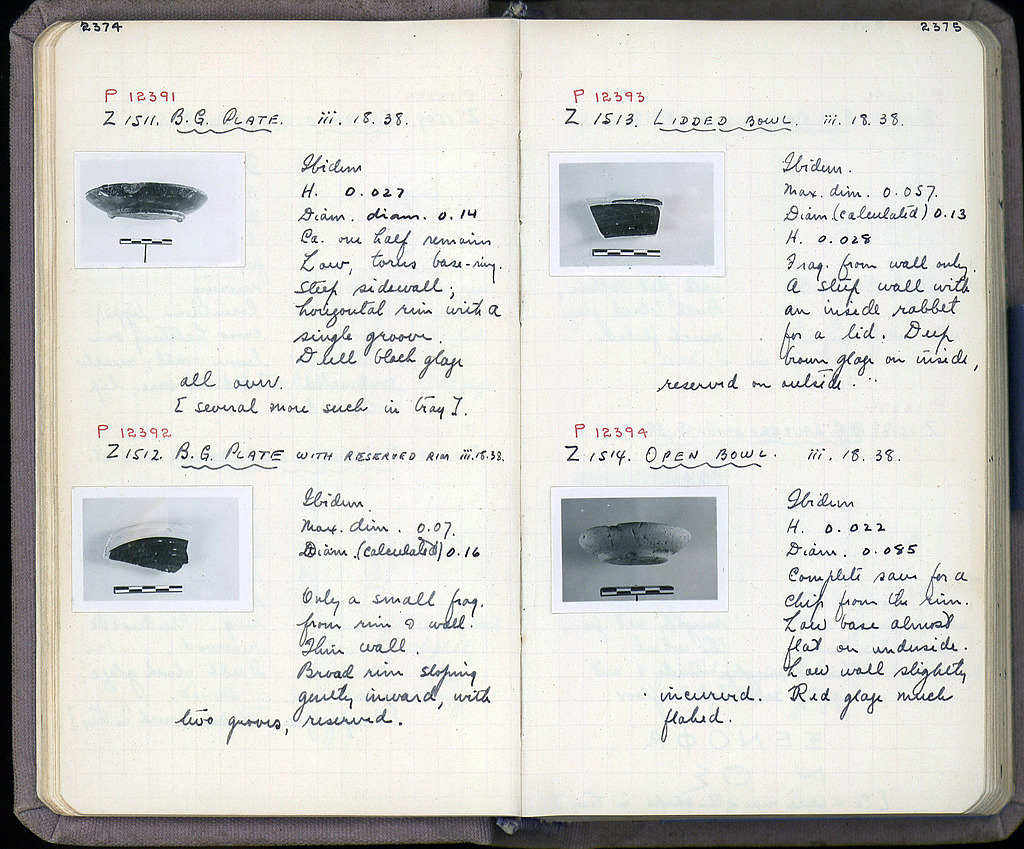 2374
P 12391
Z 1511. B.G. PLATE. iii. 18. 38.
Ibidem
H. 0.027
Diam. diam. 0.14
Ca. one half remains
Low, torus base-ring.
Steep sidewall;
horizontal rim with a
single groove.
Dull black glaze
all over.
[several more such in tray].
P 12392
Z 1512. B.G. PLATE WITH RESERVED RIM iii.18.38.
Ibidem.
Max. dim. 0.07.
Diam. (calculated) 0.16
Only a small frag.
from rim & wall.
Thin wall.
Broad rim sloping
gently inward, with
two grooves, reserved.
2375
P 12393
Z 1513. LIDDED BOWL. iii. 18. 38.
Ibidem.
Max. dim. 0.057.
Diam (calculated) 0.13
H. 0.028
Frag. from wall only.
A steep wall with
an inside rabbet
for a lid. Deep
brown glaze on inside,
reserved on outside.
P 12394
Z 1514. OPEN BOWL. iii. 18. 38.
Ibidem
H. 0.022
Diam. 0.085
Complete save for a
chip from the rim.
Low base almost
flat on underside.
Low wall slightly
incurved. Red glaze much
flaked.